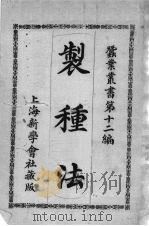 蠶業叢書第十二編
製種法
上海新學會社藏版